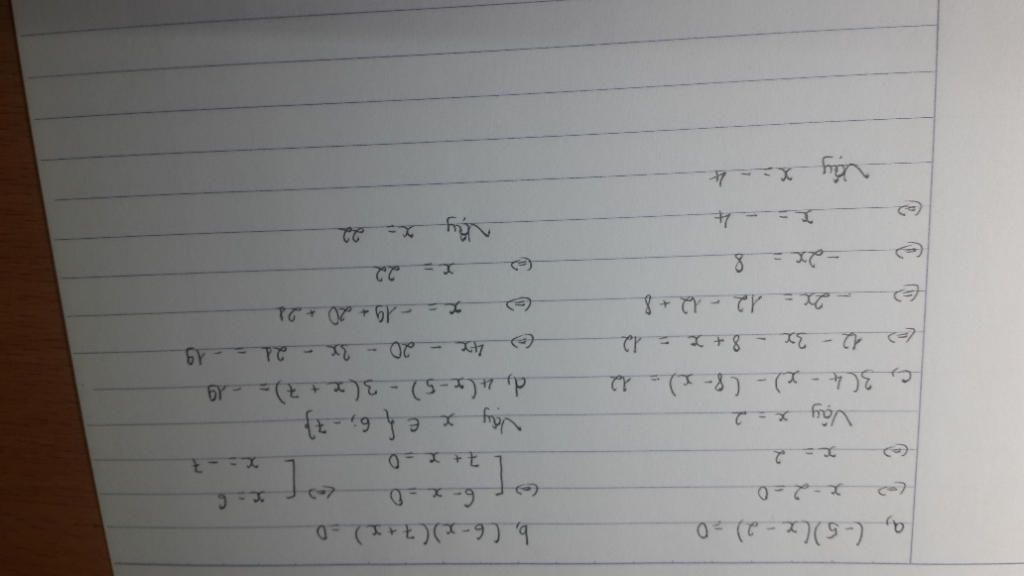 a, (-5)(x - 2) = 0
(=) x - 2 = 0
(=) x = 2
Vậy x = 2
b, (6 - x)(7 + x) = 0
(=) [ 6 - x = 0 (=) [ x = 6
7 + x = 0 x = -7
Vậy x ∈ { 6 ; -7 }
c, 3(4 - x) - (8 - x) = 12
(=) 12 - 3x - 8 + x = 12
(=) - 2x = 12 - 12 + 8
(=) - 2x = 8
(=) x = - 4
Vậy x = - 4
d, 4(x - 5) - 3(x + 7) = - 19
(=) 4x - 20 - 3x - 21 = - 19
(=) x = - 19 + 20 + 21
(=) x = 22
Vậy x = 22